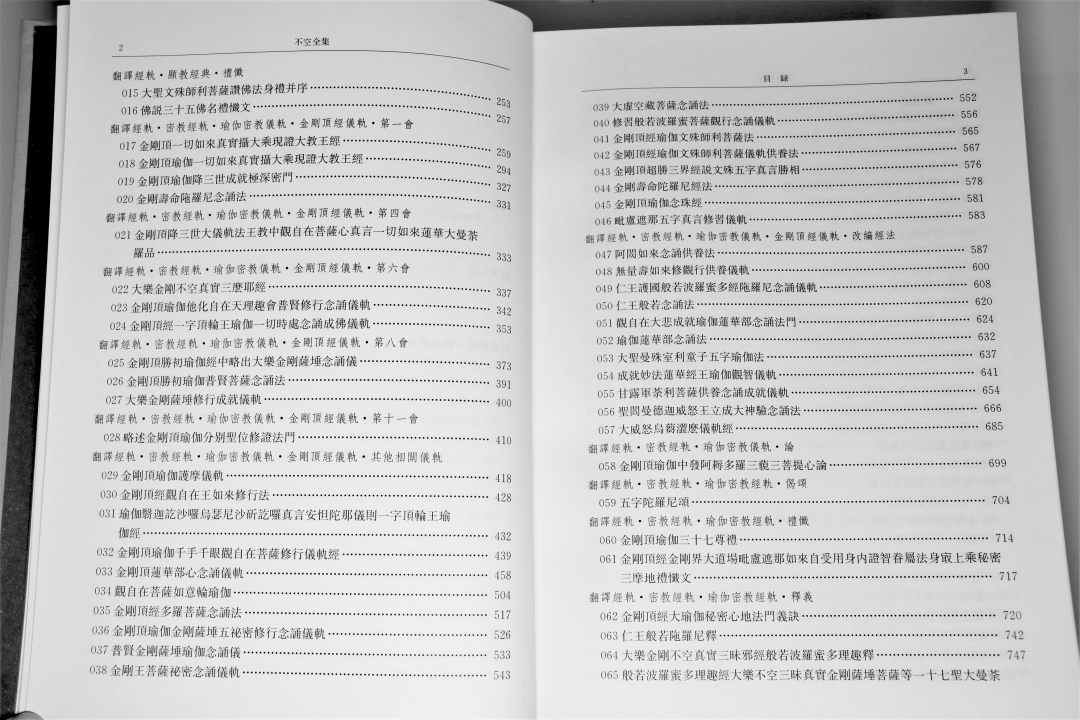 2
不空全集
翻譯經軌・顯教經典・禮懺
015 大聖文殊師利菩薩讚佛法身禮并序 253
016 佛說三十五佛名禮懺文 257
翻譯經軌・密教經軌・瑜伽密教儀軌・金剛頂經儀軌・第一會
017 金剛頂一切如來真實攝大乘現證大教王經 259
018 金剛頂瑜伽一切如來真實攝大乘現證大教王經 294
019 金剛頂瑜伽降三世成就極深密門 327
020 金剛壽命陁羅尼念誦法 331
翻譯經軌・密教經軌・瑜伽密教儀軌・金剛頂經儀軌・第四會
021 金剛頂降三世大儀軌法王教中觀自在菩薩心真言一切如來蓮華大曼荼
羅品 333
翻譯經軌・密教經軌・瑜伽密教儀軌・金剛頂經儀軌・第六會
022 大樂金剛不空真實三麼耶經 337
023 金剛頂瑜伽他化自在天理趣會普賢修行念誦儀軌 342
024 金剛頂經一字頂輪王瑜伽一切時處念誦成佛儀軌 353
翻譯經軌・密教經軌・瑜伽密教儀軌・金剛頂經儀軌・第八會
025 金剛頂勝初瑜伽經中略出大樂金剛薩埵念誦儀 373
026 金剛頂勝初瑜伽普賢菩薩念誦法 391
027 大樂金剛薩埵修行成就儀軌 400
翻譯經軌・密教經軌・瑜伽密教儀軌・金剛頂經儀軌・第十一會
028 略述金剛頂瑜伽分別聖位修證法門 410
翻譯經軌・密教經軌・瑜伽密教儀軌・金剛頂經儀軌・其他相關儀軌
029 金剛頂瑜伽護摩儀軌 418
030 金剛頂經觀自在王如來修行法 428
031 瑜伽翳迦訖沙囉烏瑟尼沙斫訖囉真言安怛陀那儀則一字頂輪王瑜
伽經 432
032 金剛頂瑜伽千手千眼觀自在菩薩修行儀軌經 439
033 金剛頂蓮華部心念誦儀軌 458
034 觀自在菩薩如意輪瑜伽 504
035 金剛頂經多羅菩薩念誦法 517
036 金剛頂瑜伽金剛薩埵五祕密修行念誦儀軌 526
037 普賢金剛薩埵瑜伽念誦儀 533
038 金剛王菩薩祕密念誦儀軌 543
目 録
3
039 大虛空藏菩薩念誦法 552
040 修習般若波羅蜜菩薩觀行念誦儀軌 556
041 金剛頂經瑜伽文殊師利菩薩法 565
042 金剛頂經瑜伽文殊師利菩薩儀軌供養法 567
043 金剛頂超勝三界經說文殊五字真言勝相 576
044 金剛壽命陀羅尼經法 578
045 金剛頂瑜伽念珠經 581
046 毗盧遮那五字真言修習儀軌 583
翻譯經軌・密教經軌・瑜伽密教儀軌・金剛頂經儀軌・改編經法
047 阿閦如來念誦供養法 587
048 無量壽如來修觀行供養儀軌 600
049 仁王護國般若波羅蜜多經陁羅尼念誦儀軌 608
050 仁王般若念誦法 620
051 觀自在大悲成就瑜伽蓮華部念誦法門 624
052 瑜伽蓮華部念誦法 632
053 大聖曼殊室利童子五字瑜伽法 637
054 成就妙法蓮華經王瑜伽觀智儀軌 641
055 甘露軍荼利菩薩供養念誦成就儀軌 654
056 聖閻曼德迦威怒王立成大神驗念誦法 666
057 大威怒烏蒭澀麼儀軌經 685
翻譯經軌・密教經軌・瑜伽密教儀軌・論
058 金剛頂瑜伽中發阿耨多羅三藐三菩提心論 699
翻譯經軌・密教經軌・瑜伽密教經軌・偈頌
059 五字陀羅尼頌 704
翻譯經軌・密教經軌・瑜伽密教經軌・禮懺
060 金剛頂瑜伽三十七尊禮 714
061 金剛頂經金剛界大道場毗盧遮那如來自受用身內證智眷屬法身㝡上乘秘密
三摩地禮懺文 717
翻譯經軌・密教經軌・瑜伽密教經軌・釋義
062 金剛頂經大瑜伽秘密心地法門義訣 720
063 仁王般若陁羅尼釋 742
064 大樂金剛不空真實三昧耶經般若波羅蜜多理趣釋 747
065 般若波羅蜜多理趣經大樂不空三昧真實金剛薩埵菩薩等一十七聖大曼荼